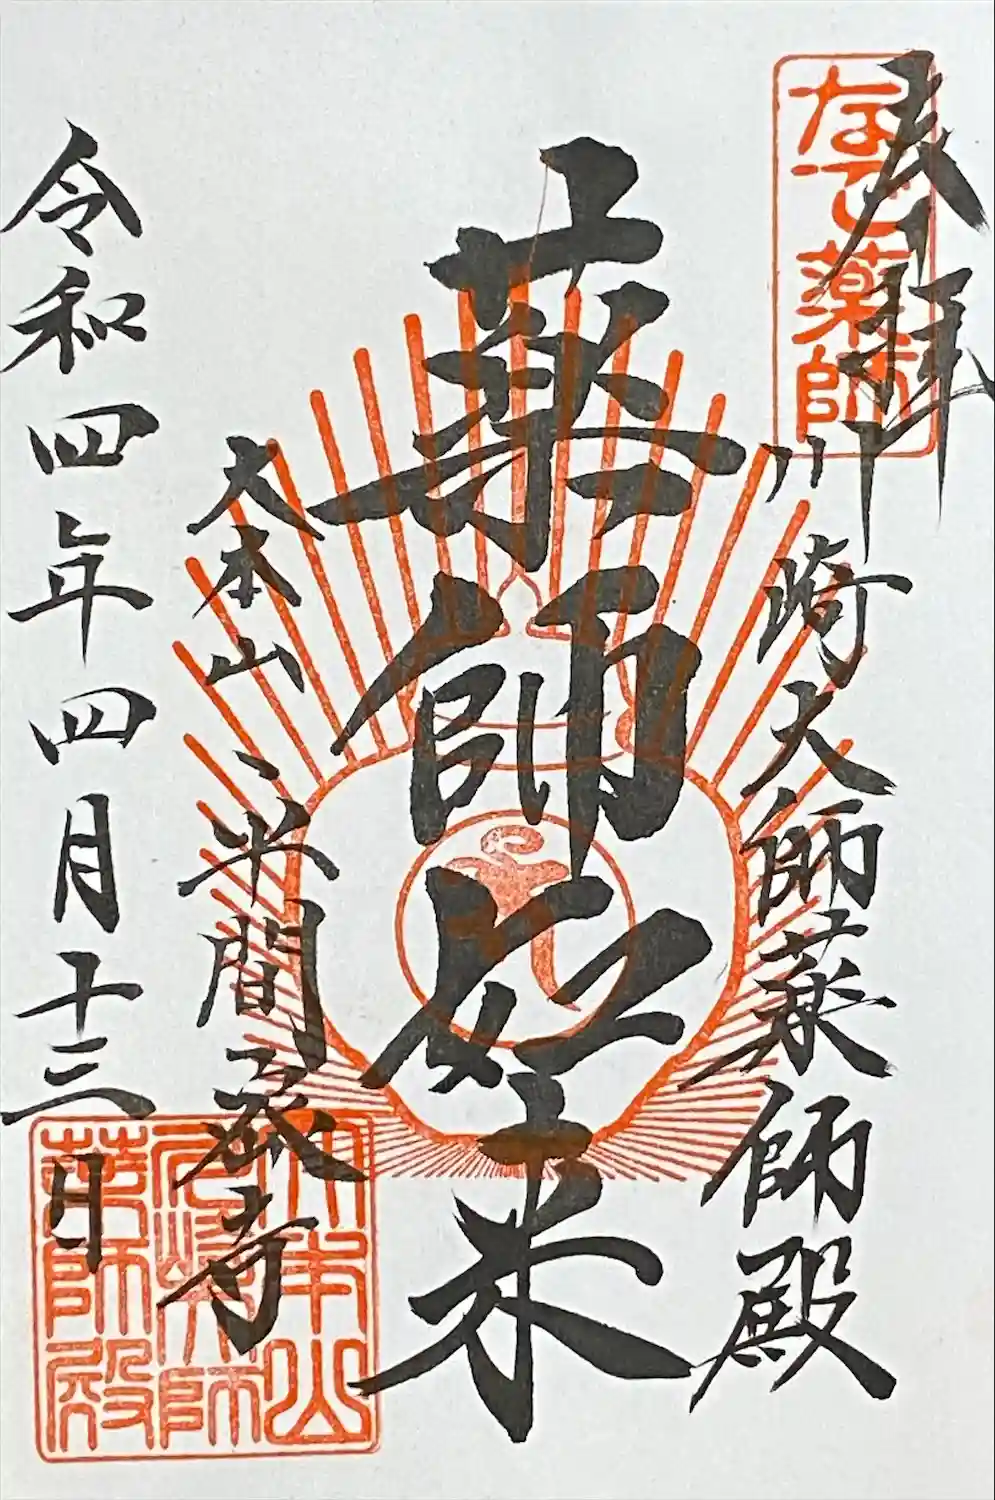 奉拝
なで薬師
川崎大師薬師殿
薬師如来
大本山 平間寺
令和四年四月十三日
大本山
川崎大師
薬師殿